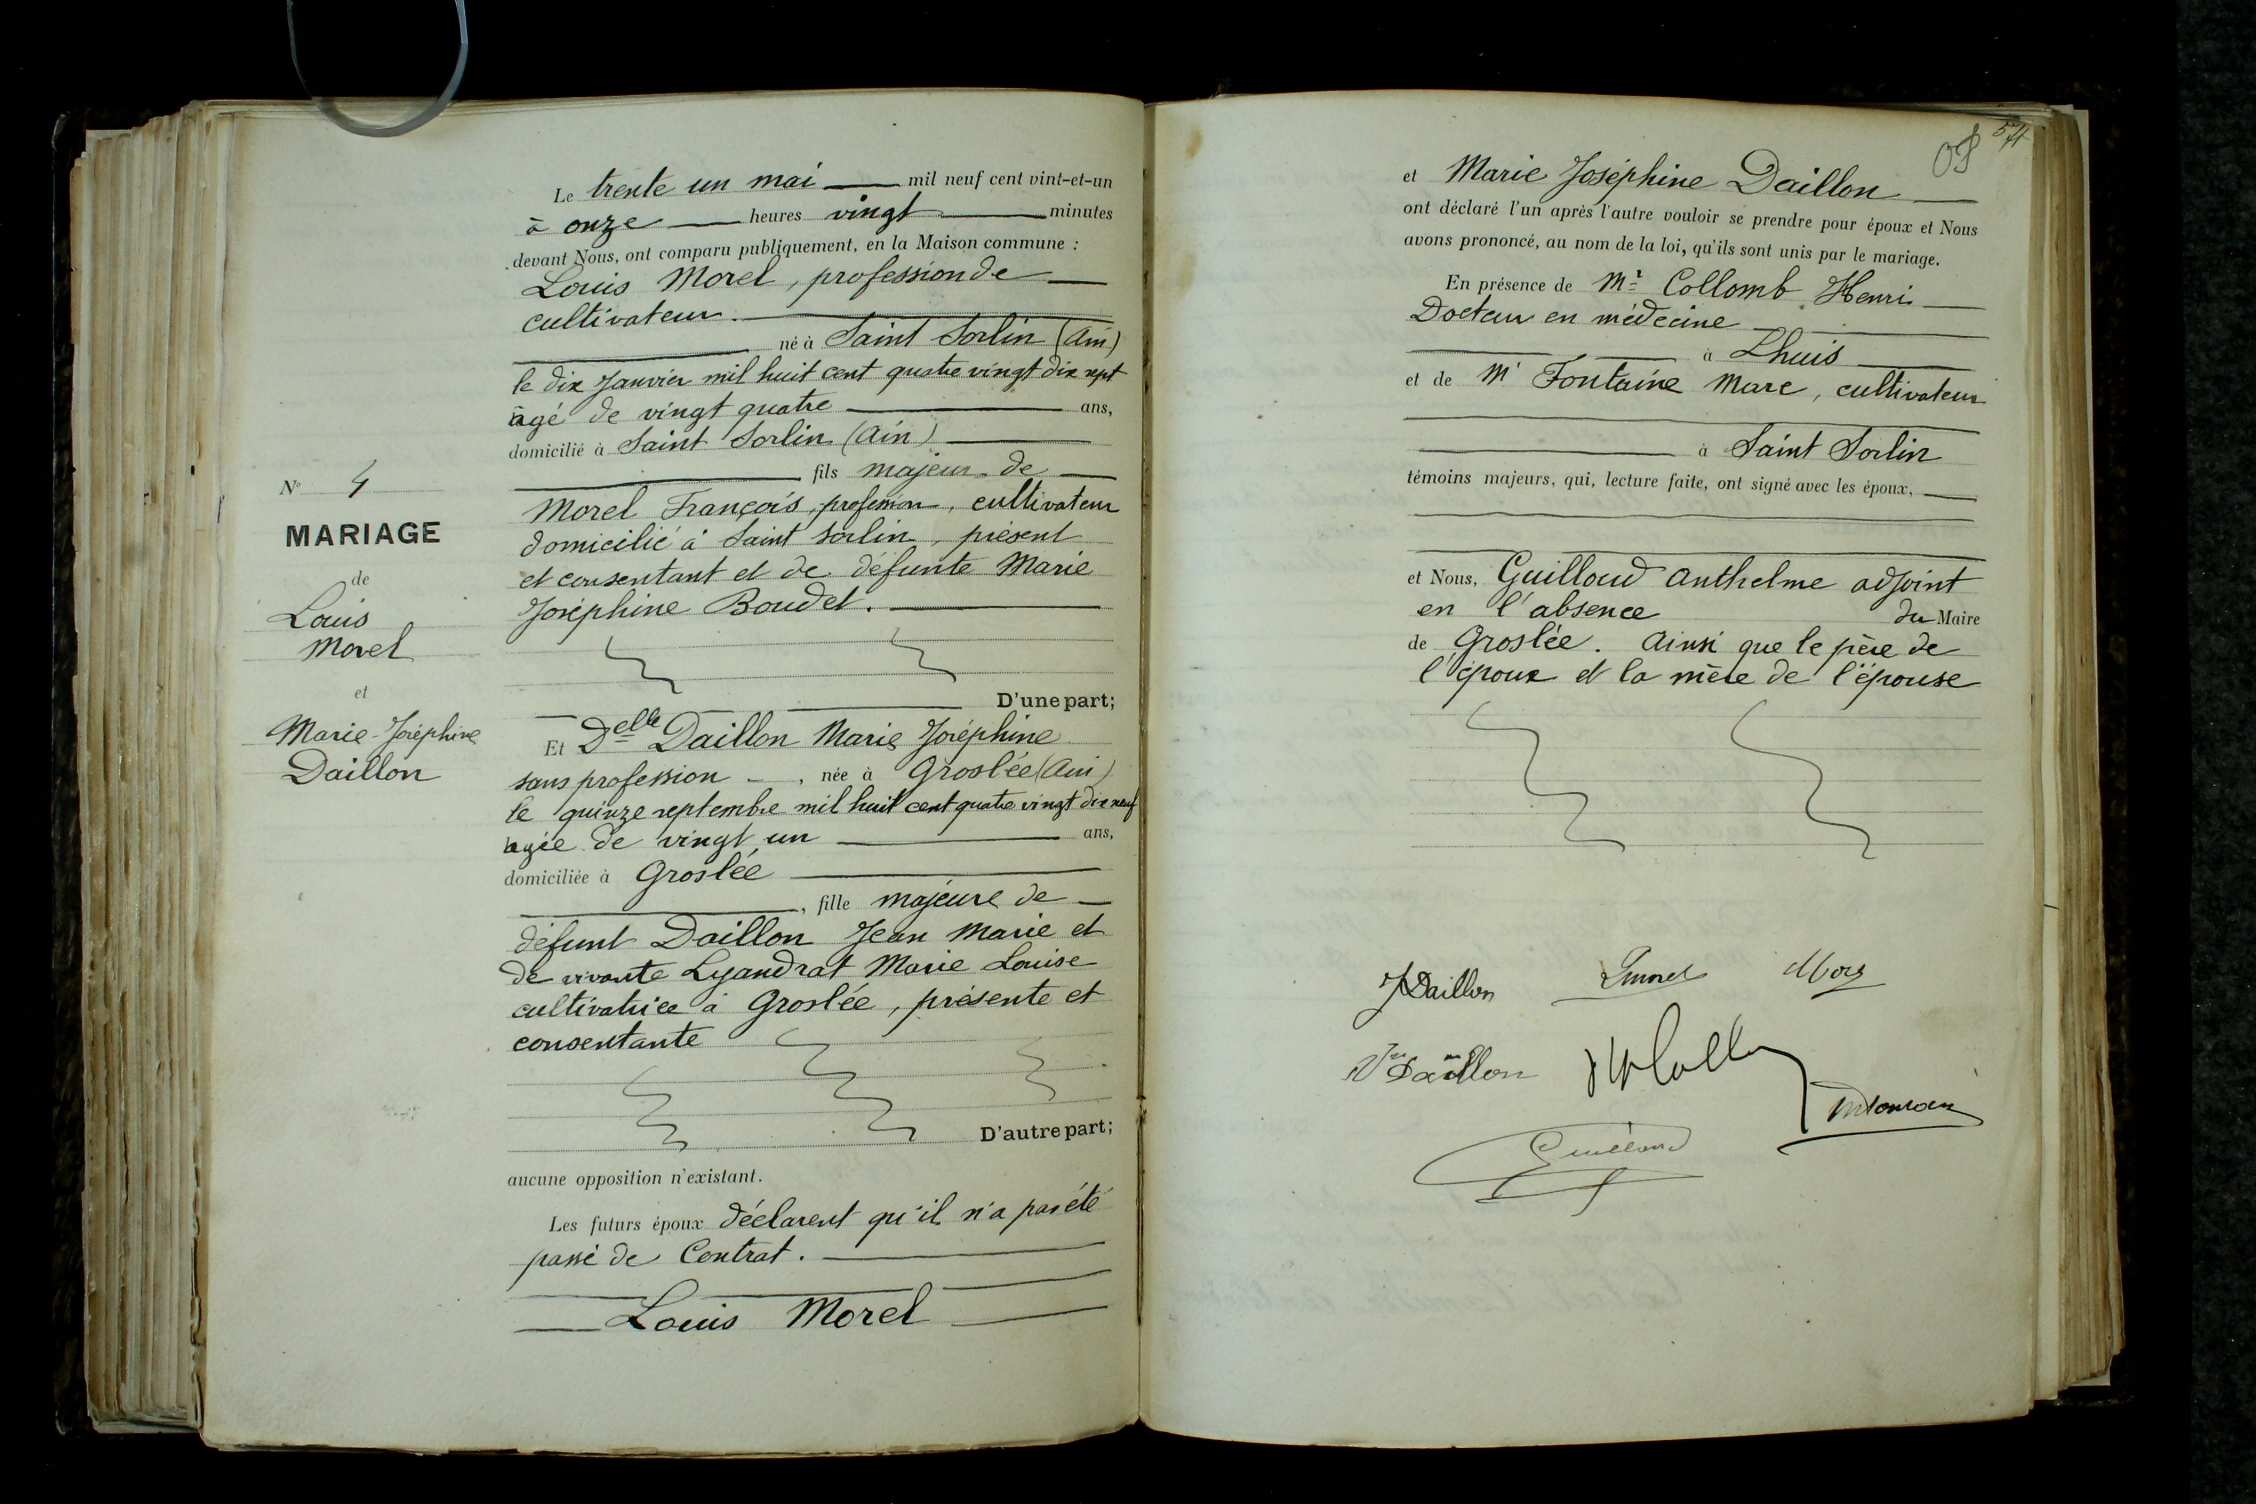 Nº 4
MARIAGE
de
Louis
Morel
et
Marie-Joséphine
Daillon
Le trente un mai mil neuf cent vint-et-un
à onze heures vingt minutes
devant Nous, ont comparu publiquement, en la Maison commune :
Louis Morel, profession de
cultivateur.
né à Saint Sorlin (Ain)
le dix Janvier mil huit cent quatre vingt dix sept
âgé de vingt quatre ans,
domicilié à Saint Sorlin (Ain)
fils majeur de
Morel François, profession, cultivateur
domicilié à Saint Sorlin, présent
et consentant et de défunte Marie
Joséphine Boudet.
D'une part;
Et Delle Daillon Marie Joséphine
sans profession, née à Groslée (Ain)
le quinze septembre mil huit cent quatre vingt dix neuf
agée de vingt un ans,
domiciliée à Groslée
, fille majeure de
défunt Daillon Jean Marie et
de vivante Lyandrat Marie Louise
cultivatrice à Groslée, présente et
consentante
D'autre part;
aucune opposition n'existant.
Les futurs époux déclarent qu'il n'a pas été
passé de Contrat.
Louis Morel
54
et Marie Joséphine Daillon
ont déclaré l'un après l'autre vouloir se prendre pour époux et Nous
avons prononcé, au nom de la loi, qu'ils sont unis par le mariage.
En présence de Mr Collomb Henri
Docteur en médecine
à Lhuis
et de Mr Fontaine Marc, cultivateur
à Saint Sorlin
témoins majeurs, qui, lecture faite, ont signé avec les époux,
et Nous, Guilloud Anthelme adjoint
en l'absence du Maire
de Groslée. Ainsi que le père de
l'époux et la mère de l'épouse
J Daillon LMorel
Vve Daillon
Guilloud